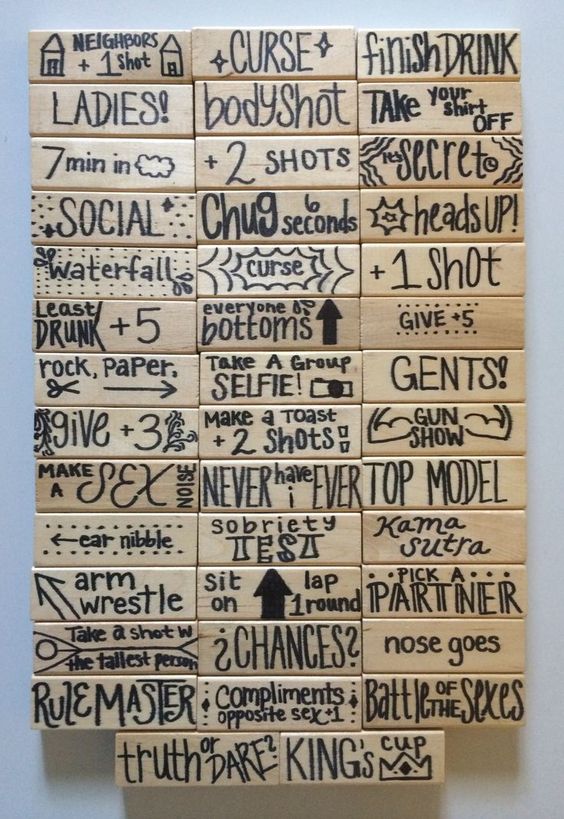 NEIGHBORS + 1 shot
CURSE
finish DRINK
LADIES!
bodyshot
TAKE your shirt OFF
7 min in
+ 2 SHOTS
it's Secret
SOCIAL
Chug 6 seconds
headsUP!
waterfall
curse
+ 1 Shot
Least DRUNK +5
everyone bottoms
GIVE +5
rock, paper,
Take A Group SELFIE!
GENTS!
give +3
Make a Toast + 2 Shots!
GUN SHOW
MAKE A SEX NOISE
NEVER have i EVER
TOP MODEL
ear nibble
sobriety TEST
Kama sutra
arm wrestle
sit on lap 1round
PICK A PARTNER
Take a shot w the tallest person
¿CHANCES?
nose goes
RULE MASTER
Compliments opposite sex +1
Battle OF THE Sexes
truth or DARE?
KING's cup